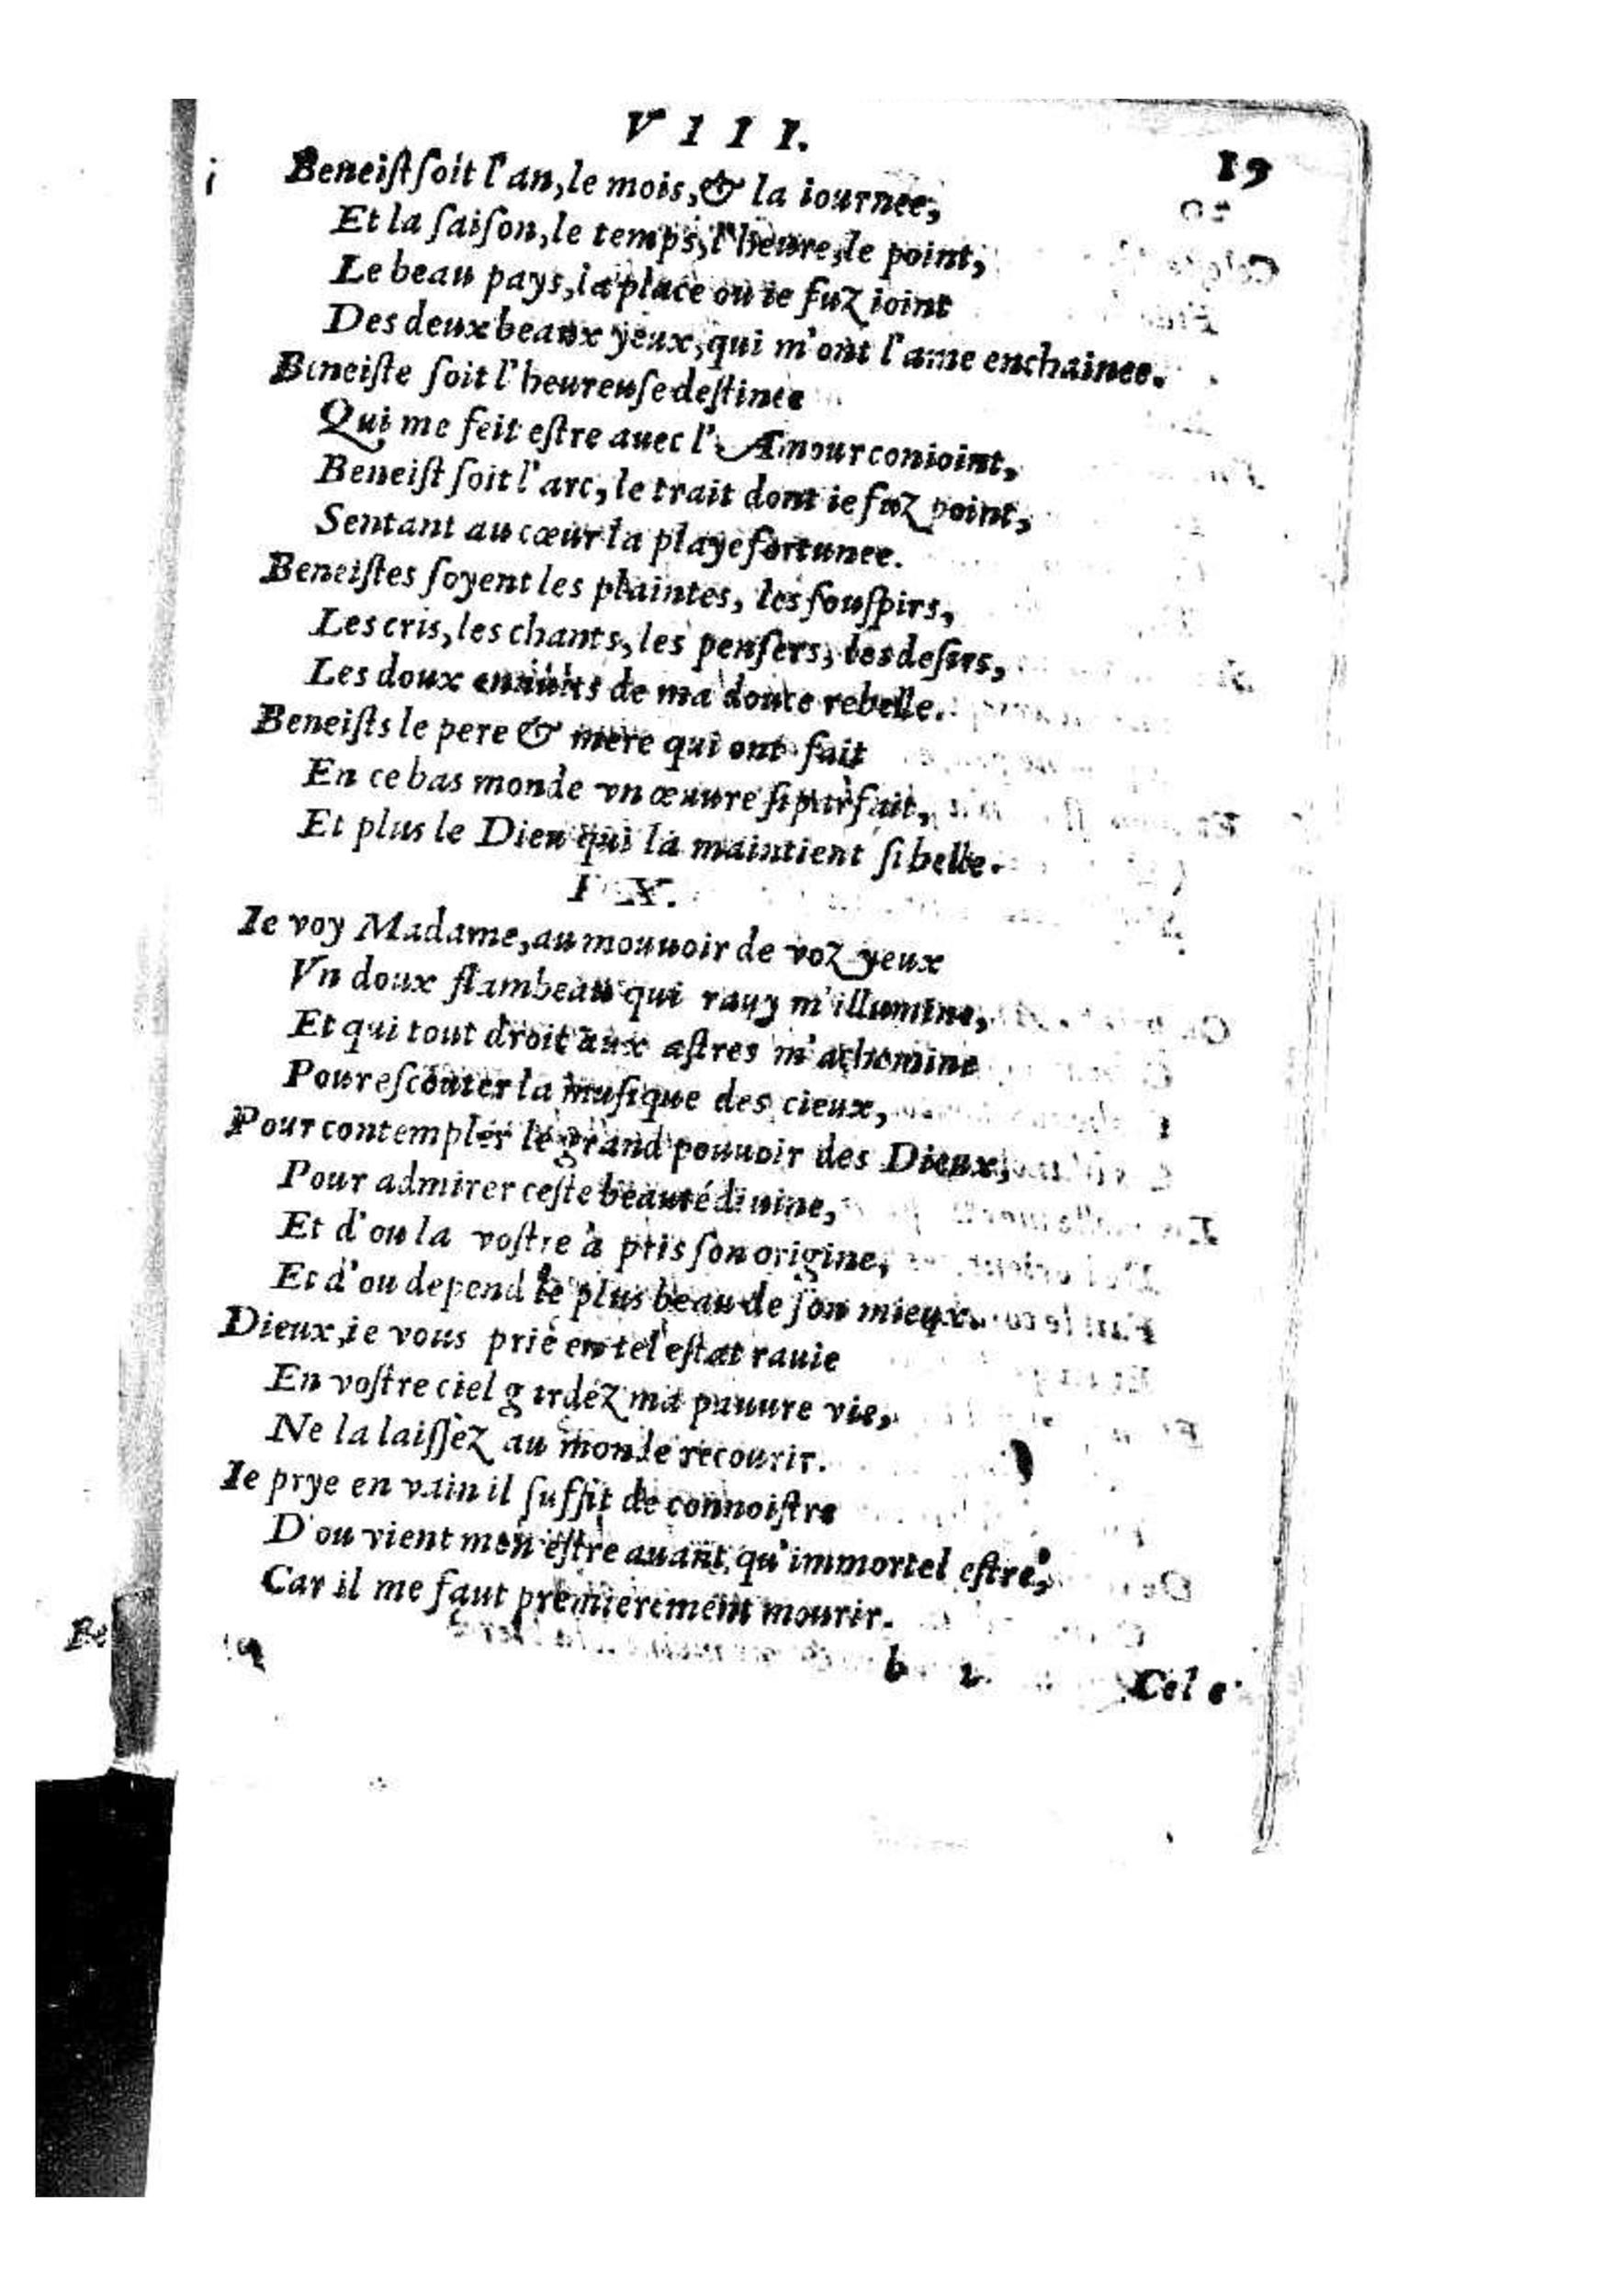 VIII.
19
Beneiſt ſoit l'an, le mois, & la iournee,
Et la ſaiſon, le temps, l'heure, le point,
Le beau pays, la place ou ie fuz ioint
Des deux beaux yeux, qui m'ont l'ame enchainee.
Beneiſte ſoit l'heureuſe deſtinee
Qui me feit eſtre auec l'Amour conioint,
Beneiſt ſoit l'arc, le trait dont ie fuz point,
Sentant au cœur la playe fortunee.
Beneiſtes ſoyent les plaintes, les ſouſpirs,
Les cris, les chants, les penſers, les deſirs,
Les doux ennuits de ma douce rebelle.
Beneiſts le pere & mere qui ont fait
En ce bas monde vn œuure ſi parfait,
Et plus le Dieu qui la maintient ſi belle.
IX.
Ie voy Madame, au mouuoir de voz yeux
Vn doux flambeau qui rauy m'illumine,
Et qui tout droit aux aſtres m'achemine
Pour eſcouter la muſique des cieux,
Pour contempler le grand pouuoir des Dieux,
Pour admirer ceſte beauté diuine,
Et d'ou la voſtre à pris ſon origine,
Et d'ou depend le plus beau de ſon mieux.
Dieux, ie vous prie en tel eſtat rauie
En voſtre ciel gardez ma pauure vie,
Ne la laiſſez au monde recourir.
Ie prye en vain il ſuffit de connoiſtre
D'ou vient mon eſtre auant qu'immortel eſtre,
Car il me faut premierement mourir.
b 2
Cele
Be